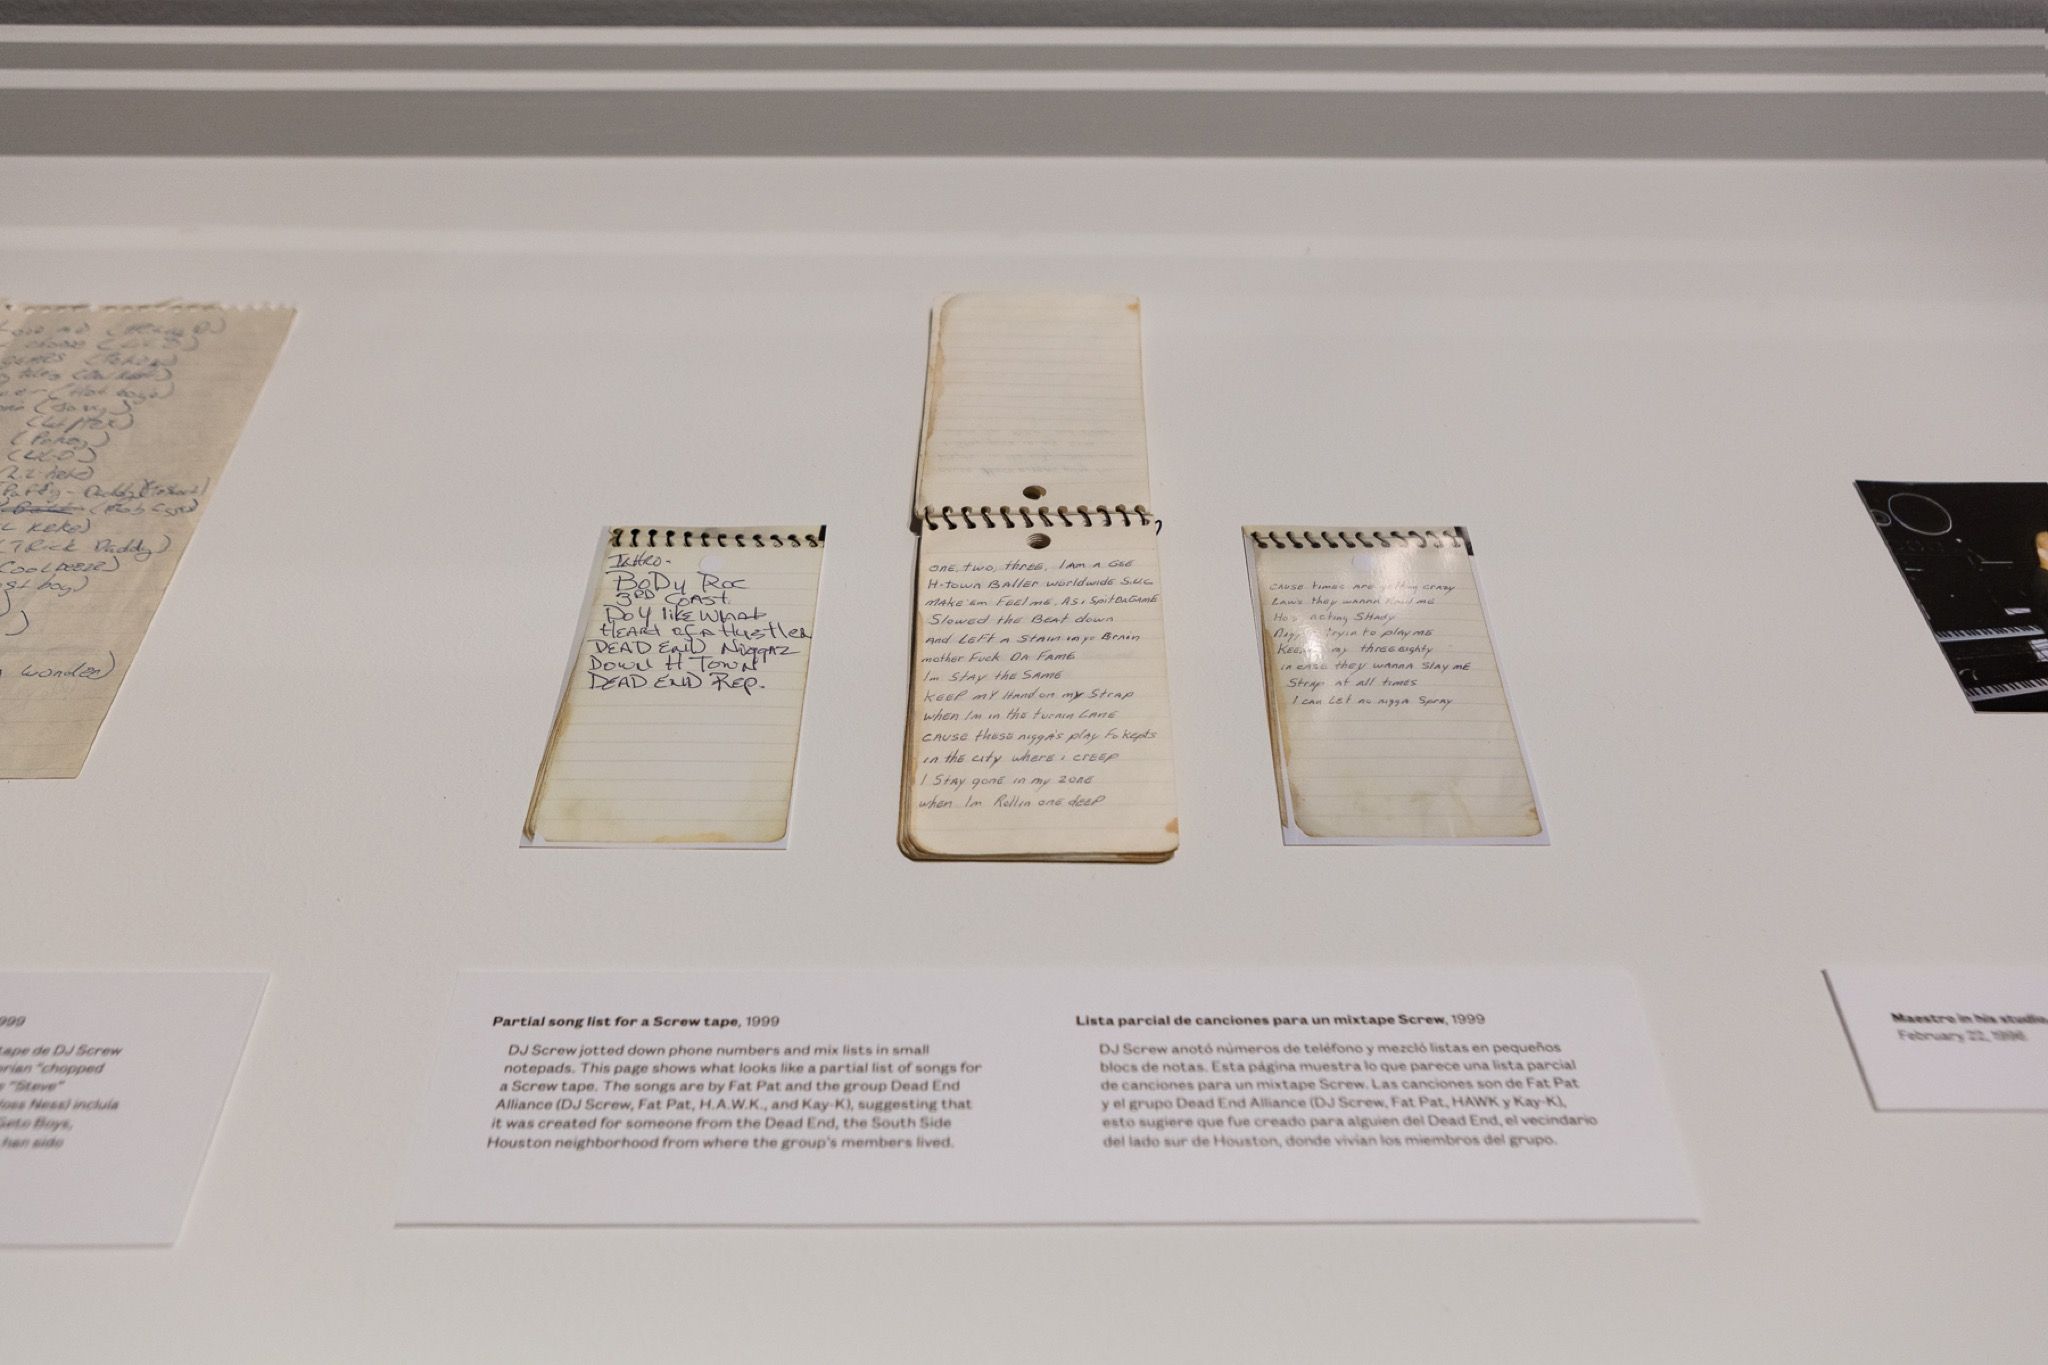 (Lil-O)
(Pokey)
(Hot boys)
(Pokey)
(Lil-O)
Lil-keke)
L KeKe)
(TRick Daddy)
wonder)
Intro-
Body Roc
3RD Coast
Doy like What
Heart of a Hustler
DEAD END Niggaz
Down H Town
DEAD END Rep.
one, two, three, I am a Gee
H-town Baller worldwide S.U.C
make'em Feel me. As i Spit Da Game
Slowed the Beat down
And Left a Stain in yo Brain
mother Fuck Da Fame
Im Stay the Same
Keep my Hand on my Strap
when Im in the turnin Lane
cause these nigga's play Fo kepts
in the city where i creep
I Stay gone in my zone
when Im Rollin one deep
cause times are getting crazy
Laws they wanna me
Ho's acting Shady
tryin to play me
Keep my three eighty
in case they wanna Slay me
Strap at all times
I can Let no nigga Spray
999
tape de DJ Screw
"chopped
"Steve"
incluía
Geto Boys,
han sido
Partial song list for a Screw tape, 1999
DJ Screw jotted down phone numbers and mix lists in small
notepads. This page shows what looks like a partial list of songs for
a Screw tape. The songs are by Fat Pat and the group Dead End
Alliance (DJ Screw, Fat Pat, H.A.W.K., and Kay-K), suggesting that
it was created for someone from the Dead End, the South Side
Houston neighborhood from where the group's members lived.
Lista parcial de canciones para un mixtape Screw, 1999
DJ Screw anotó números de teléfono y mezcló listas en pequeños
blocs de notas. Esta página muestra lo que parece una lista parcial
de canciones para un mixtape Screw. Las canciones son de Fat Pat
y el grupo Dead End Alliance (DJ Screw, Fat Pat, HAWK y Kay-K),
esto sugiere que fue creado para alguien del Dead End, el vecindario
del lado sur de Houston, donde vivían los miembros del grupo.
Maestro in his studio,
February 22, 1996